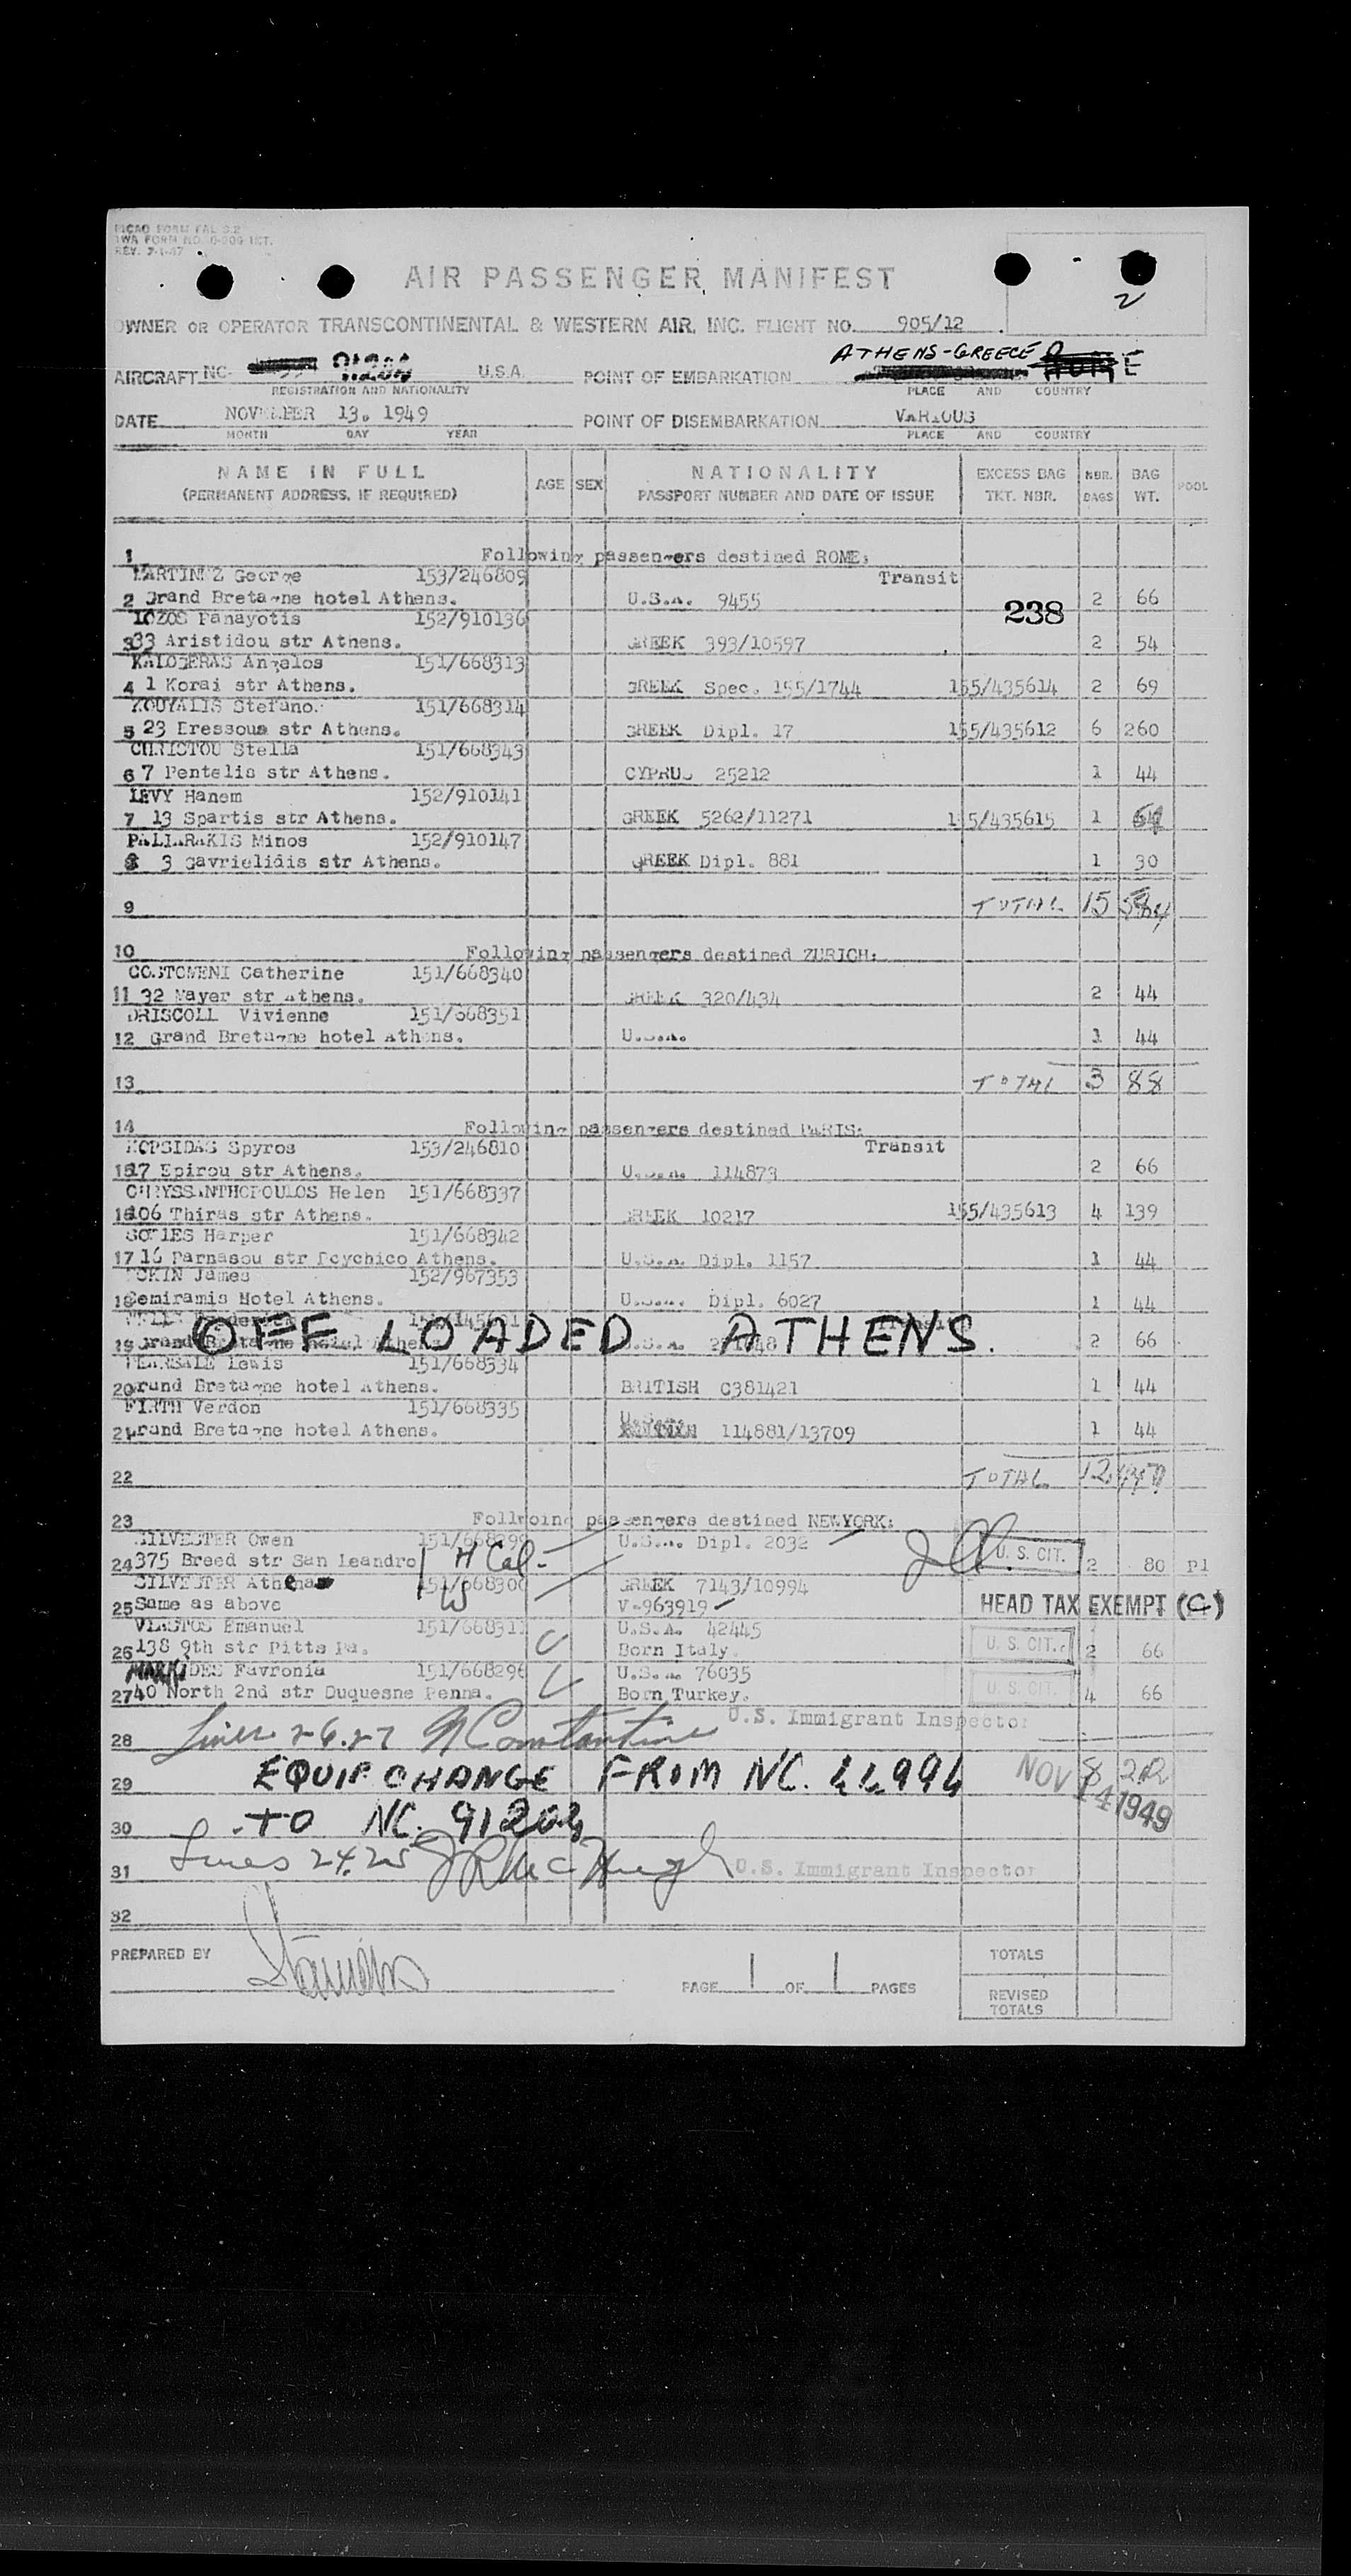 ICAO FORM FAL 3.2
TWA FORM NO. 0-209 INT.
REV. 7-1-47
AIR PASSENGER MANIFEST
2
OWNER OR OPERATOR TRANSCONTINENTAL & WESTERN AIR, INC. FLIGHT NO. 905/12
ATHENS-GREECE
AIRCRAFT NC- U.S.A. POINT OF EMBARKATION
REGISTRATION AND NATIONALITY PLACE AND COUNTRY
DATE NOVEMBER 13. 1949 POINT OF DISEMBARKATION VARIOUS
MONTH DAY YEAR PLACE AND COUNTRY
NAME IN FULL AGE SEX NATIONALITY EXCESS BAG NBR. BAG POOL
(PERMANENT ADDRESS, IF REQUIRED) PASSPORT NUMBER AND DATE OF ISSUE TKT. NBR. BAGS WT.
1 Following passengers destined ROME:
MARTINEZ George 153/246809 Transit
2 Grand Bretagne hotel Athens. U.S.A. 9455 238 2 66
Panayotis 152/910136
3 33 Aristidou str Athens. GREEK 393/10597 2 54
KALOGERAS Angelos 151/668313
4 1 Korai str Athens. GREEK Spec. 155/1744 155/435614 2 69
151/668314
5 23 Dressoum str Athens. GREEK Dipl. 17 155/435612 6 260
CHRISTOU Stella 151/668343
6 7 Pentelis str Athens. CYPRUS 25212 1 44
LEVY Hanem 152/910141
7 13 Spartis str Athens. GREEK 5262/11271 155/435615 1
PALLARAKIS Minos 152/910147
8 3 Gavrielidis str Athens. GREEK Dipl. 881 1 30
9 TOTAL 15
10 Following passengers destined ZURICH:
COSTOMENI Catherine 151/668340
11 32 Mayer str Athens. GREEK 320/434 2 44
DRISCOLL Vivienne 151/668351
12 Grand Bretagne hotel Athens. U.S.A. 1 44
13 TOTAL 3 88
14 Following passengers destined PARIS:
KOPSIDAS Spyros 153/246810 Transit
15 17 Epirou str Athens. U.S.A. 114873 2 66
CHRYSSANTHOPOULOS Helen 151/668337
16 106 Thiras str Athens. GREEK 10217 155/435613 4 139
Harper 151/668342
17 16 Parnasou str Psychico Athens. U.S.A. Dipl. 1157 1 44
James 152/967353
18 Semiramis Hotel Athens. U.S.A. Dipl. 6027 1 44
OFF LOADED ATHENS.
19 Grand Bretagne hotel Athens U.S.A. 2 66
Lewis 151/668334
20 Grand Bretagne hotel Athens. BRITISH C381421 1 44
FIRTH Verdon 151/668335 U.S.A.
21 Grand Bretagne hotel Athens. 114881/13709 1 44
22 TOTAL 12
23 Following passengers destined NEWYORK:
SILVESTER Owen 151/668299 U.S.A. Dipl. 2032
24 375 Breed str San Leandro H Cal- U. S. CIT. 2 80 Pl
SILVESTER Athena 151/668300 GREEK 7143/10994
25 Same as above W V-963919 HEAD TAX EXEMPT (C)
VLASTOS Emanuel 151/668311 U.S.A. 42445
26 138 9th str Pitts Pa. Born Italy. U. S. CIT. 2 66
MARKIDES Favronia 151/668296 U.S.A. 76035
27 40 North 2nd str Duquesne Penna. Born Turkey. U. S. CIT. 4 66
28 Lines 26.27 N Constantine U.S. Immigrant Inspector
29 EQUIP. CHANGE FROM NC. 8 212
NOV 14 1949
30 TO NC.
31 Lines 24.25 J R MacHugh U.S. Immigrant Inspector
32
PREPARED BY TOTALS
PAGE 1 OF 1 PAGES
REVISED
TOTALS